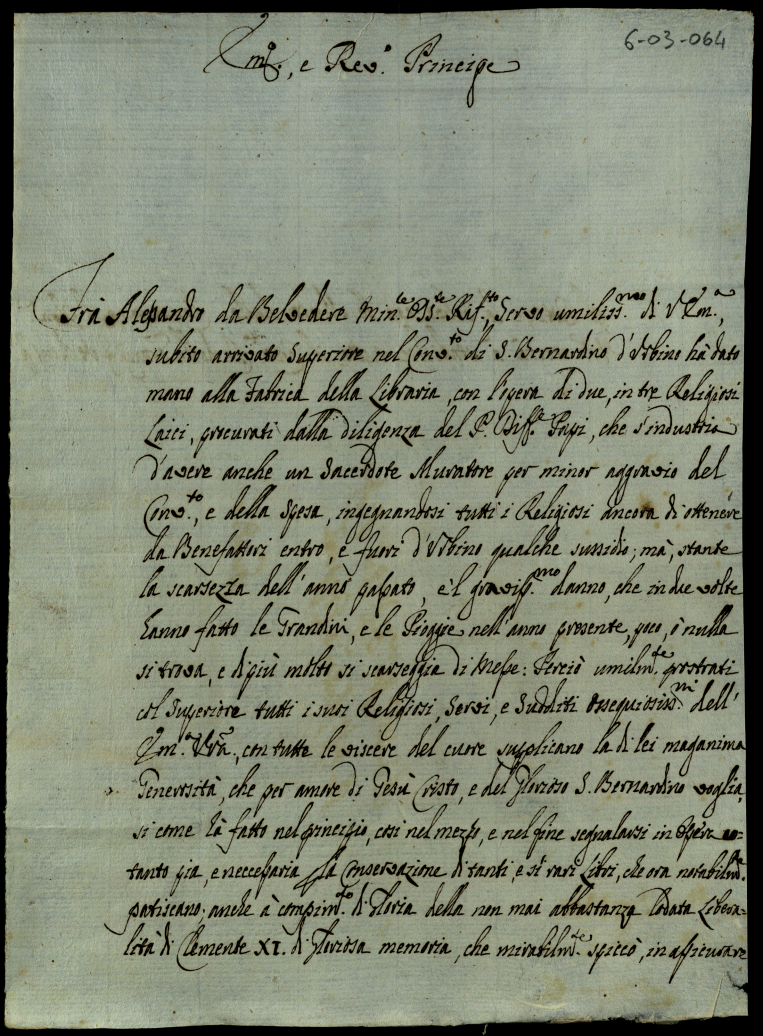 6-03-064
Em.º, e Rev.º Principe
Frà Alessandro da Belvedere Min.le Oss.te Rif.to, Servo umiliss.mo di V Em.a,
subito arrivato Superiore nel Conv.to di S. Bernardino d'Urbino hà dato
mano alla Fabrica della Libraria, con l'opera di due, in tre Religiosi
Laici, procurati dalla diligenza del P. Diff.e Papi, che s'industria
d'avere anche un Sacerdote Muratore per minor aggravio del
Conv.to, e della spesa, ingegnandosi tutti i Religiosi ancora di ottenere
da Benefattori entro, e fuori d'Urbino qualche sussidio; mà, stante
la scarsezza dell'anno passato, e'l graviss.mo danno, che in due volte
hanno fatto le Grandini, e le Pioggie nell'anno presente, poco, ò nulla
si trova, e di più molto si scarseggia di Messe: Perciò umilm.te prostrati
col Superiore tutti i suoi Religiosi, Servi, e Sudditi ossequiosiss.mi dell'
Em.a Vr̃a, con tutte le viscere del cuore supplicano la di lei maganima
Generosità, che per amore di Gesù Cristo, e del Glorioso S. Bernardino voglia,
si come hà fatto nel principio, così nel mezzo, e nel fine segnalarsi in Opera
tanto pia, e neccessaria p̱ la Conservazione di tanti, e sì rari Libri, che ora notabilm.te
patiscano; anche à compim.to di Gloria della non mai abbastanza lodata Libera=
lità di Clemente XI. di Gloriosa memoria, che mirabilm.te spiccò, in assicurare